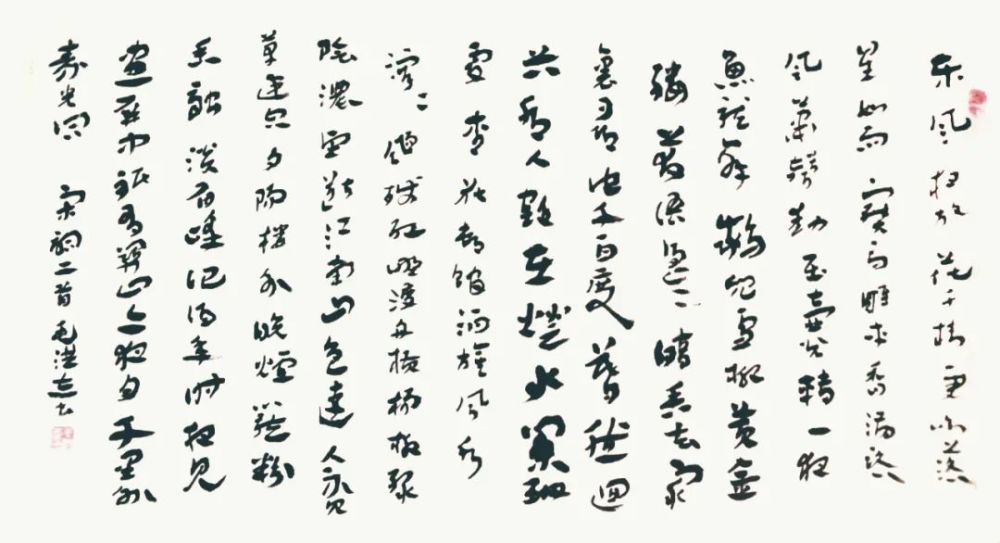 东风夜放花千树更吹落
星如雨宝马雕车香满路
凤箫声动玉壶光转一夜
鱼龙舞蛾儿雪柳黄金
缕笑语盈盈暗香去众
里寻他千百度蓦然回
首那人却在灯火阑珊
处杏花村馆酒旗风水
溶溶飏残红野渡舟横杨柳绿
阴浓望断江南山色远人不见
草连空夕阳楼外晚烟笼粉
香融淡眉峰记得年时相见
画屏中只有关山今夜月千里外
素光同 宋词二首毛洪书